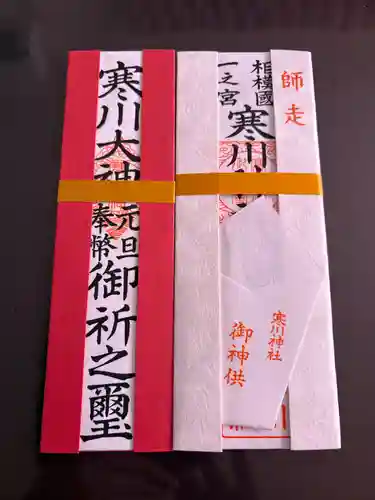 師走
相模國
一之宮
寒川
寒川神社
御神供
寒川大神
元旦
奉幣
御祈之璽